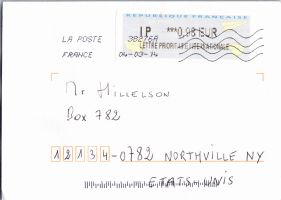 REPUBLIQUE FRANCAISE
IP ***0,98 EUR
LETTRE PRIORITAIRE INTERNATIONALE
LA POSTE 38276A
FRANCE 04-03-14
Mr HILLELSON
Box 782
12134-0782 NORTHVILLE NY
ETATS-UNIS